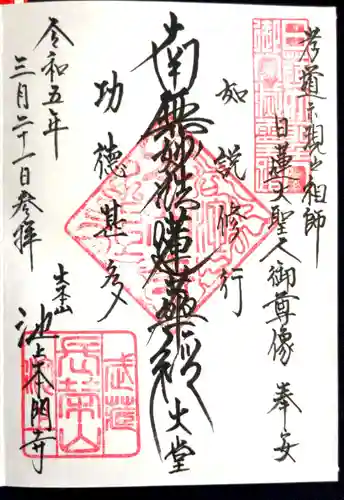 孝道示現の祖師
日蓮大聖人御尊像 奉安
如説修行
南無妙法蓮華経
大堂
功徳甚多
令和五年
三月二十一日参拝
大本山
池上本門寺
長栄山
武蔵